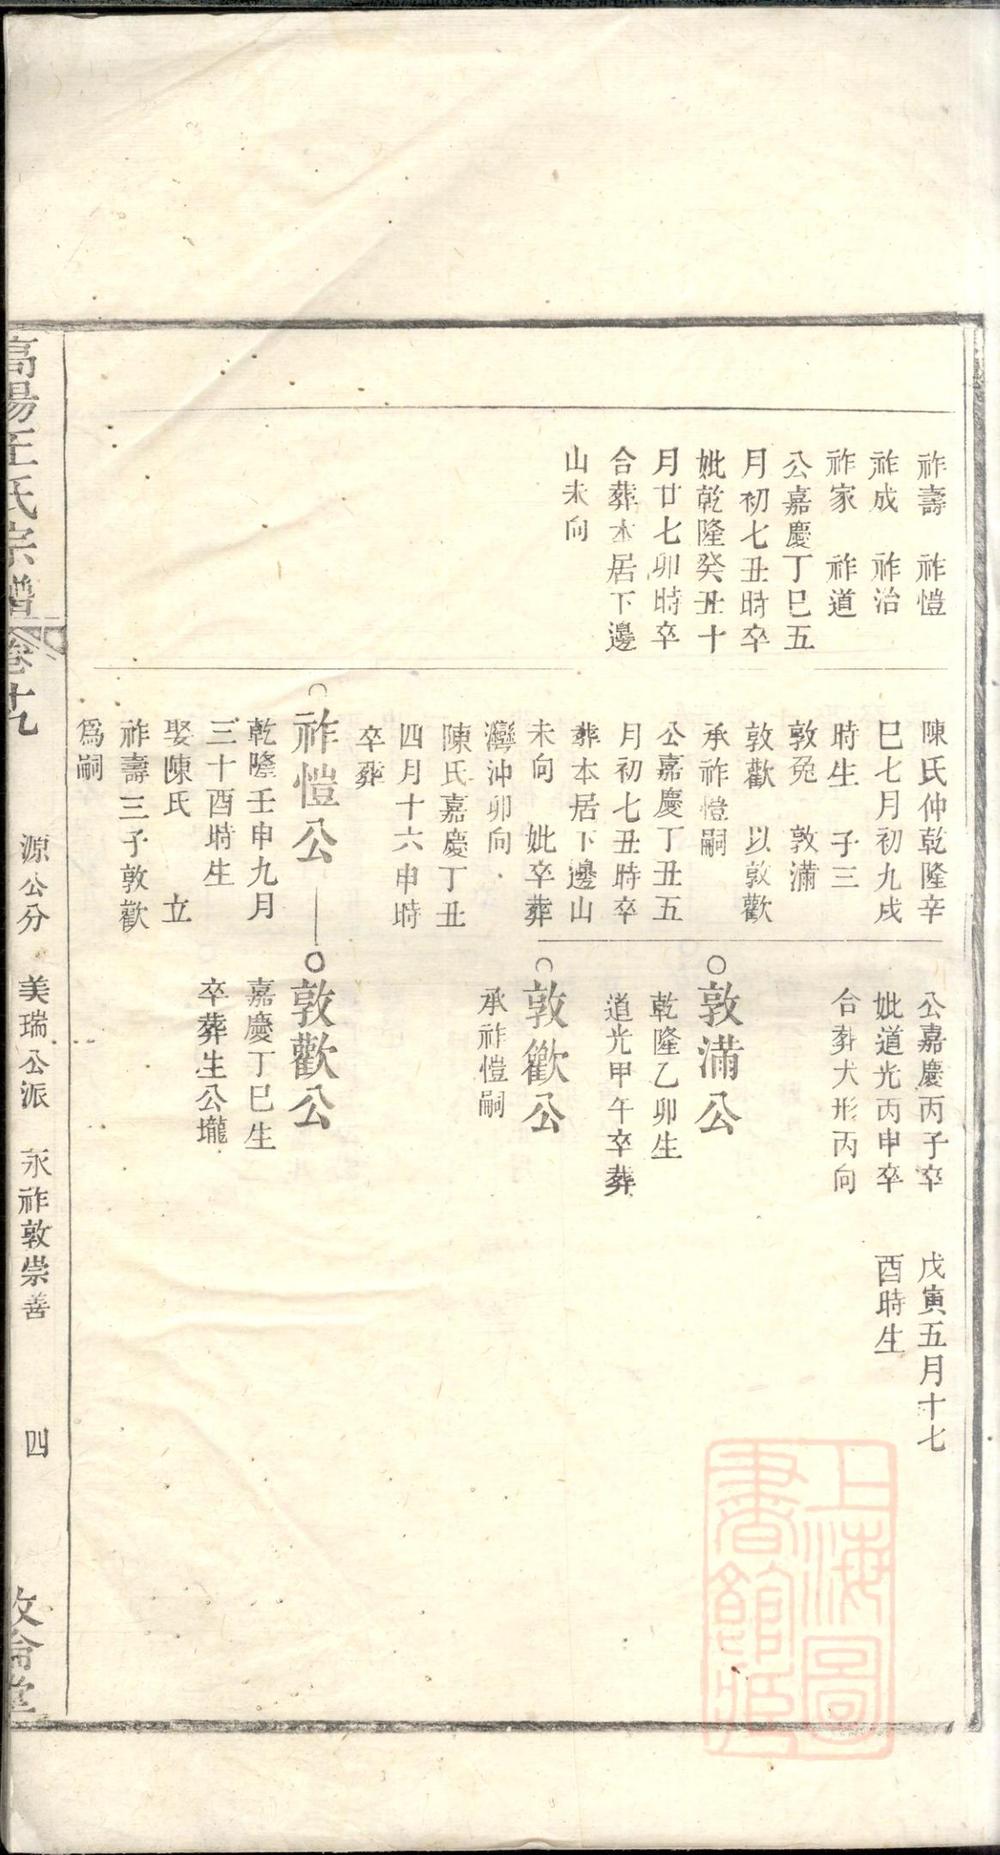 祚壽 祚愷
祚成 祚治
祚家 祚道
公嘉慶丁巳五
月初七丑時卒
妣乾隆癸丑十
月廿七卯時卒
合葬本居下邊
山未向
陳氏仲乾隆辛
巳七月初九戌
時生 子三
敦兔 敦滿
敦歡 以敦歡
承祚愷嗣
公嘉慶丁丑五
月初七丑時卒
葬本居下邊山
未向 妣卒葬
灣沖卯向
陳氏嘉慶丁丑
四月十六申時
卒葬
祚愷公
乾隆壬申九月
三十酉時生
娶陳氏 立
祚壽三子敦歡
爲嗣
公嘉慶丙子卒
妣道光丙申卒
合葬犬形丙向
敦滿公
乾隆乙卯生
道光甲午卒葬
敦歡公
承祚愷嗣
敦歡公
嘉慶丁巳生
卒葬生公壠
戊寅五月十七
酉時生
高陽 氏宗譜 卷十九
源公分 美瑞公派 永祚敦崇善 四
敦倫堂
上海圖
書館藏